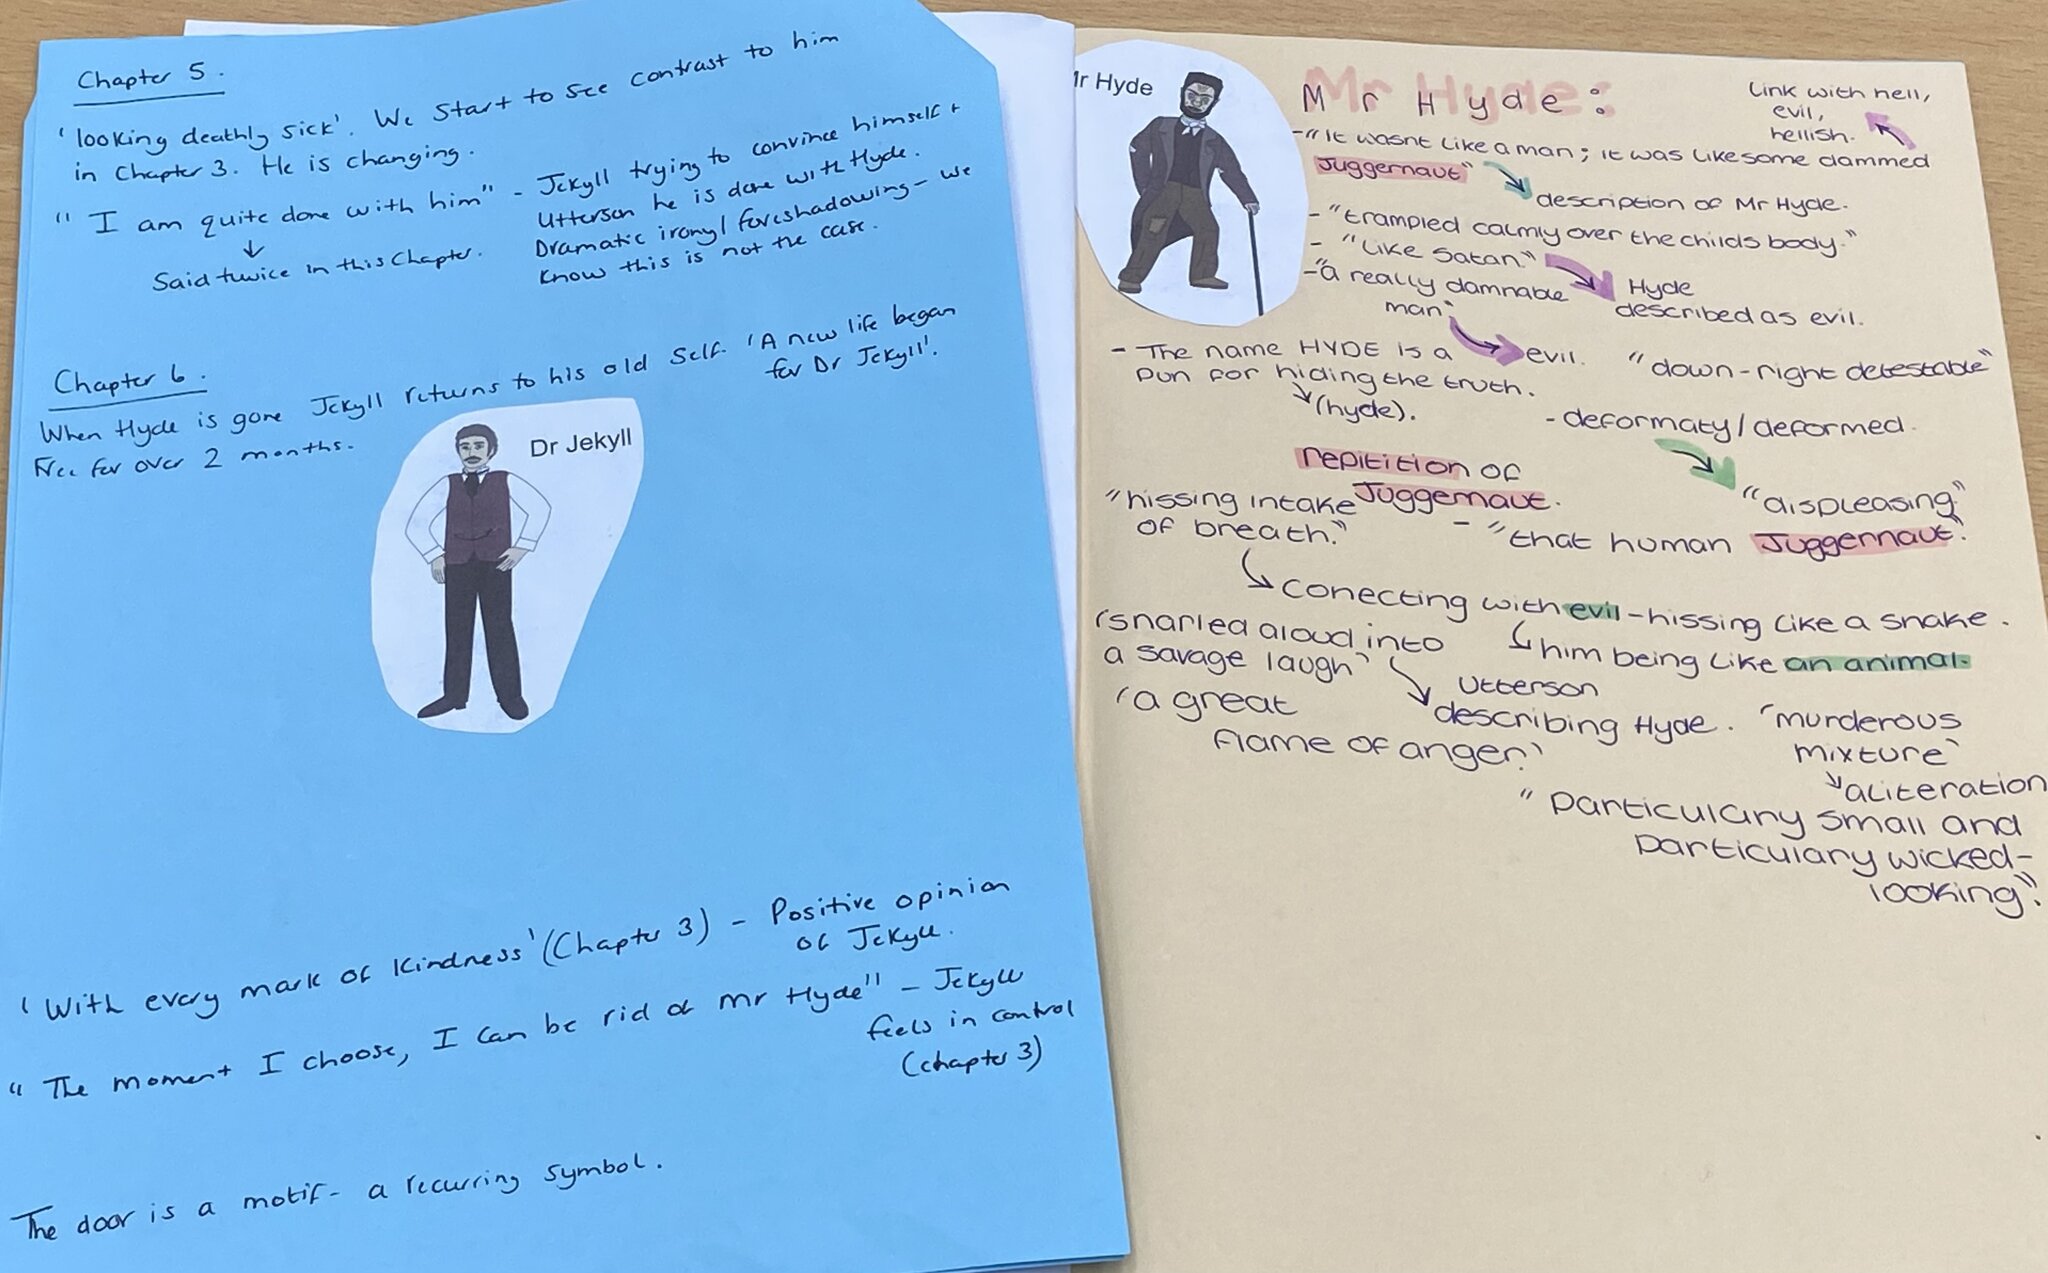 Chapter 5.
'looking deathly sick'. We start to see contrast to him
in Chapter 3. He is changing.
" I am quite done with him" - Jekyll trying to convince himself +
Utterson he is done with Hyde.
Dramatic irony/foreshadowing - we
know this is not the case.
↓
Said twice in this Chapter.
Chapter 6.
When Hyde is gone Jekyll returns to his old self. 'A new life began
for Dr Jekyll'.
Free for over 2 months.
Dr Jekyll
'With every mark of kindness' (Chapter 3) - Positive opinion
of Jekyll.
" The moment I choose, I can be rid of Mr Hyde" - Jekyll
feels in control
(chapter 3)
The door is a motif - a recurring symbol.
Mr Hyde
Mr Hyde:
Link with hell,
evil,
hellish.
-"It wasnt like a man; it was like some dammed
Juggernaut"
description of Mr Hyde.
- "trampled calmly over the childs body."
- "Like Satan."
Hyde
described as evil.
-"a really damnable
man"
evil.
"down-right detestable"
- The name HYDE is a
pun for hiding the truth.
(hyde).
- deformaty/deformed.
"displeasing"
repitition of
Juggernaut.
"hissing intake
of breath."
- "that human Juggernaut."
Conecting with evil - hissing like a snake.
him being like an animal.
'snarled aloud into
a savage laugh'
Utterson
describing Hyde.
'a great
flame of anger.'
'murderous
mixture'
aliteration
"particulary small and
particulary wicked-
looking".